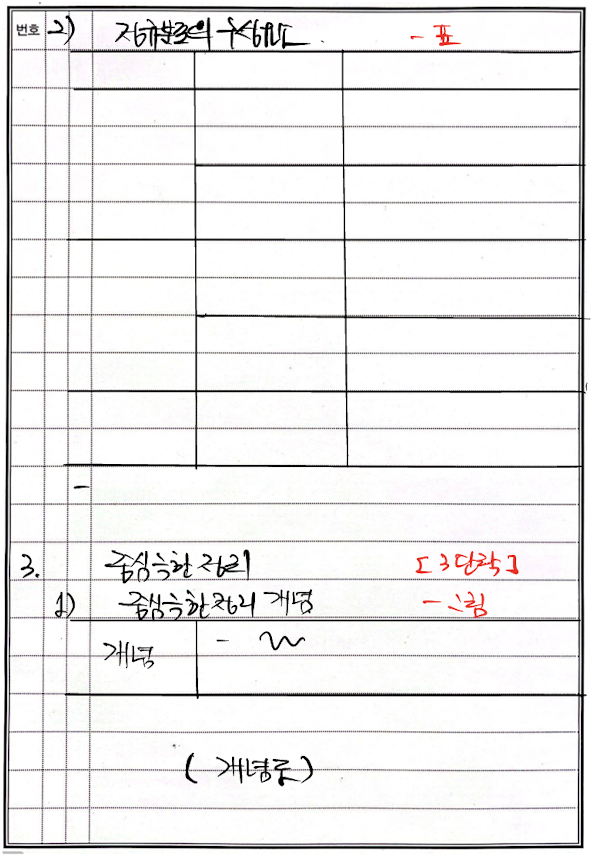 번호 2) 정규분포의 구성요소 - 표
-
3. 중심극한정리 [3단락]
1) 중심극한정리 개념 - 그림
개념 -
(개념도)